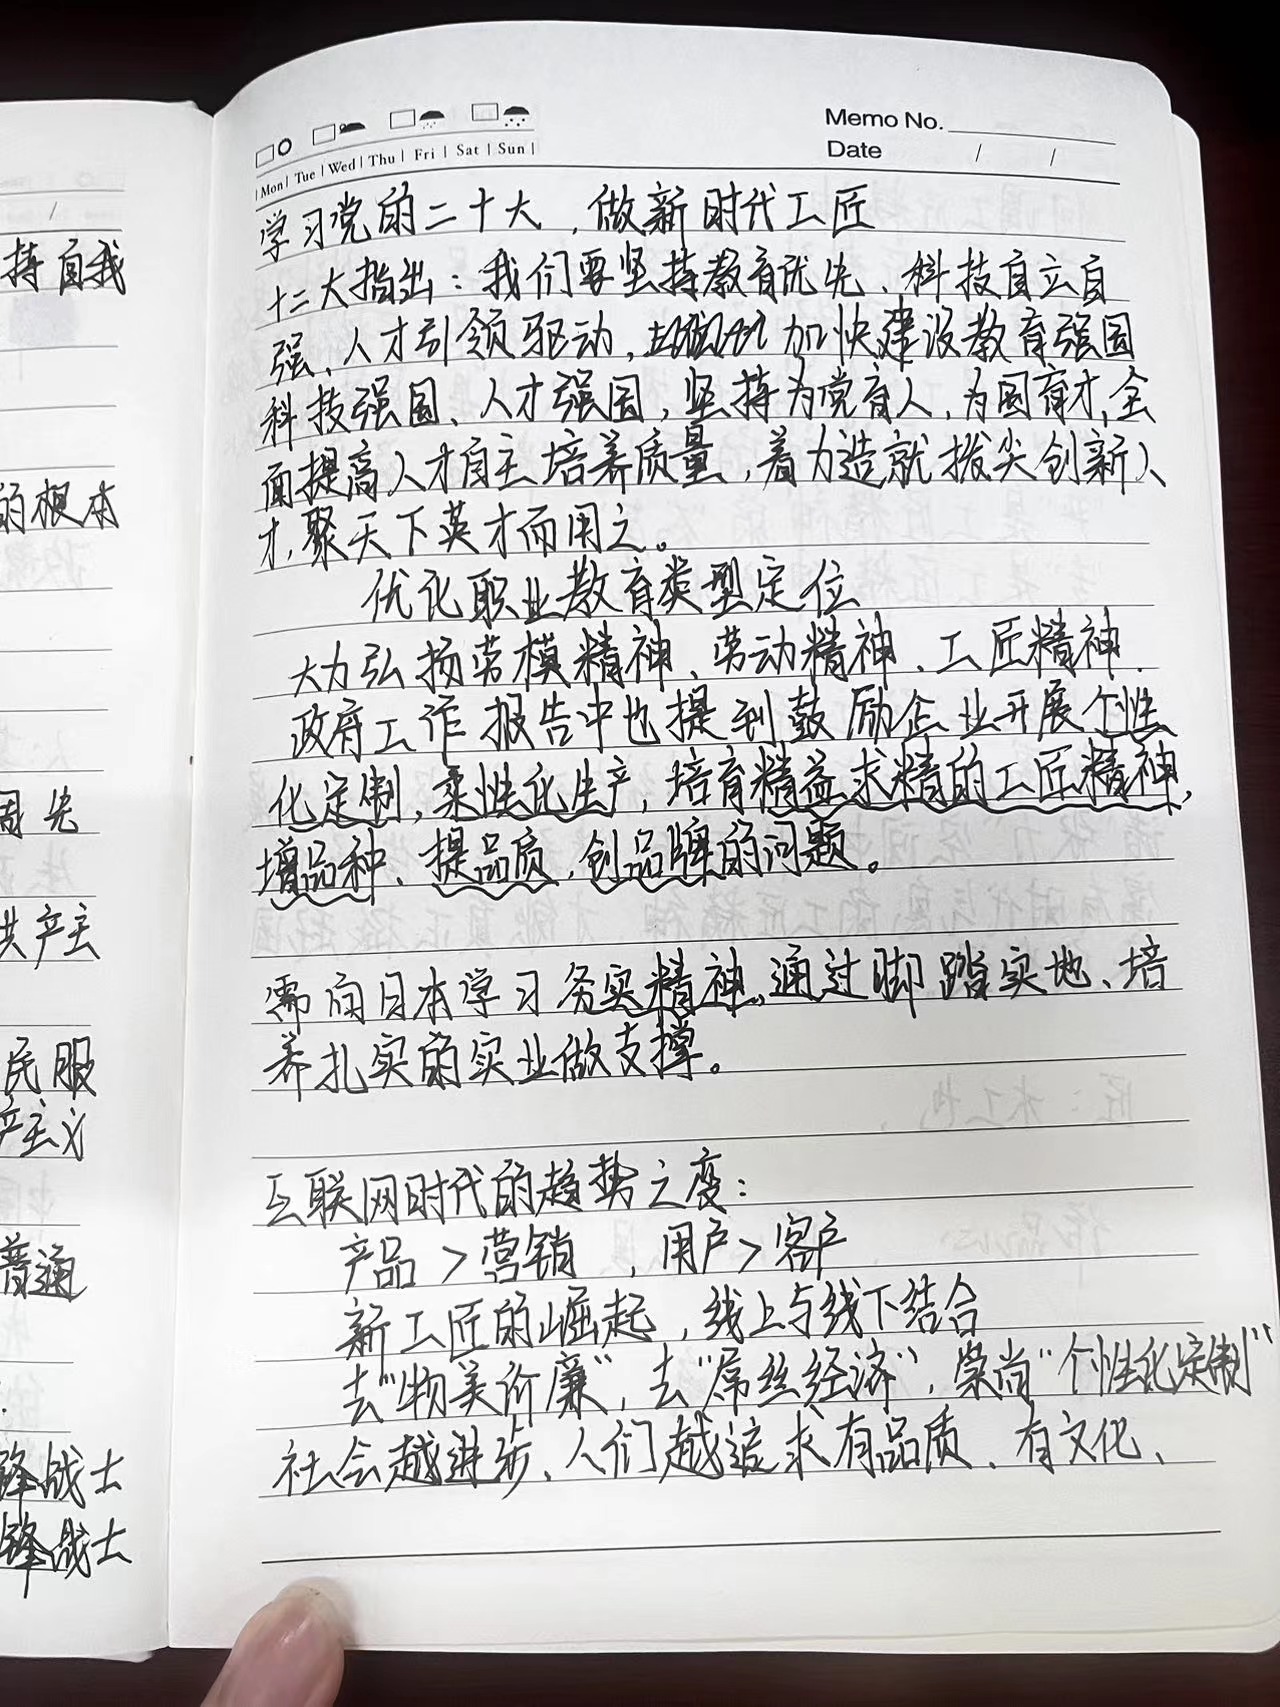 持自我
的根本
周先
共产主
民服
产主义
普通
锋战士
锋战士
Memo No.
Date / /
Mon | Tue | Wed | Thu | Fri | Sat | Sun |
学习党的二十大，做新时代工匠
十二大指出：我们要坚持教育优先、科技自立自
强、人才引领驱动，加快建设教育强国
科技强国、人才强国，坚持为党育人，为国育才，全
面提高人才自主培养质量，着力造就拔尖创新人
才，聚天下英才而用之。
优化职业教育类型定位
大力弘扬劳模精神、劳动精神、工匠精神.
政府工作报告中也提到鼓励企业开展个性
化定制，柔性化生产，培育精益求精的工匠精神，
增品种、提品质，创品牌的问题。
需向日本学习务实精神，通过脚踏实地、培
养扎实的实业做支撑。
互联网时代的趋势之变：
产品＞营销，用户＞客户
新工匠的崛起，线上与线下结合
去“物美价廉”，去“屌丝经济”，崇尚“个性化定制”
社会越进步、人们越追求有品质、有文化、